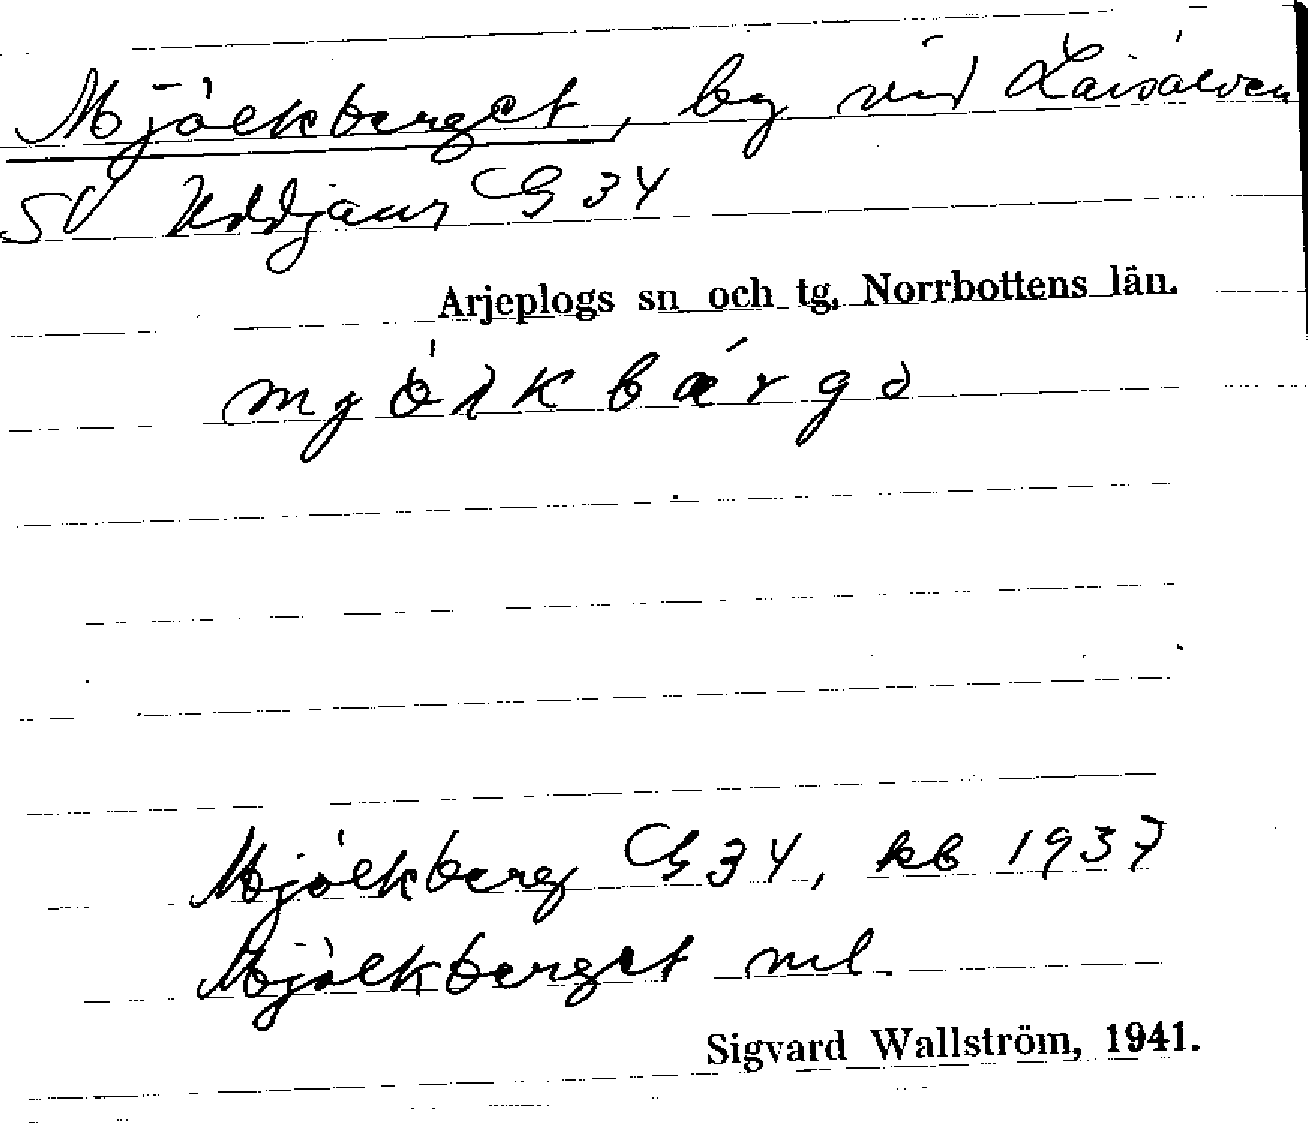 Mjölkberget, by vid Laisälven
SV Uddjaur G 34
Arjeplogs sn och tg, Norrbottens län.
Mjölkberg G 34, kb 1937
Mjölkberget ml.
Sigvard Wallström, 1941.